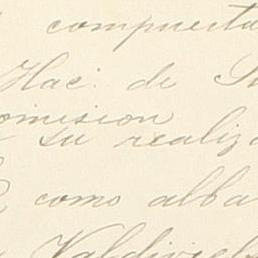 compuesta
Hac. de S
omision
su realiza
como alba
Valdivieb